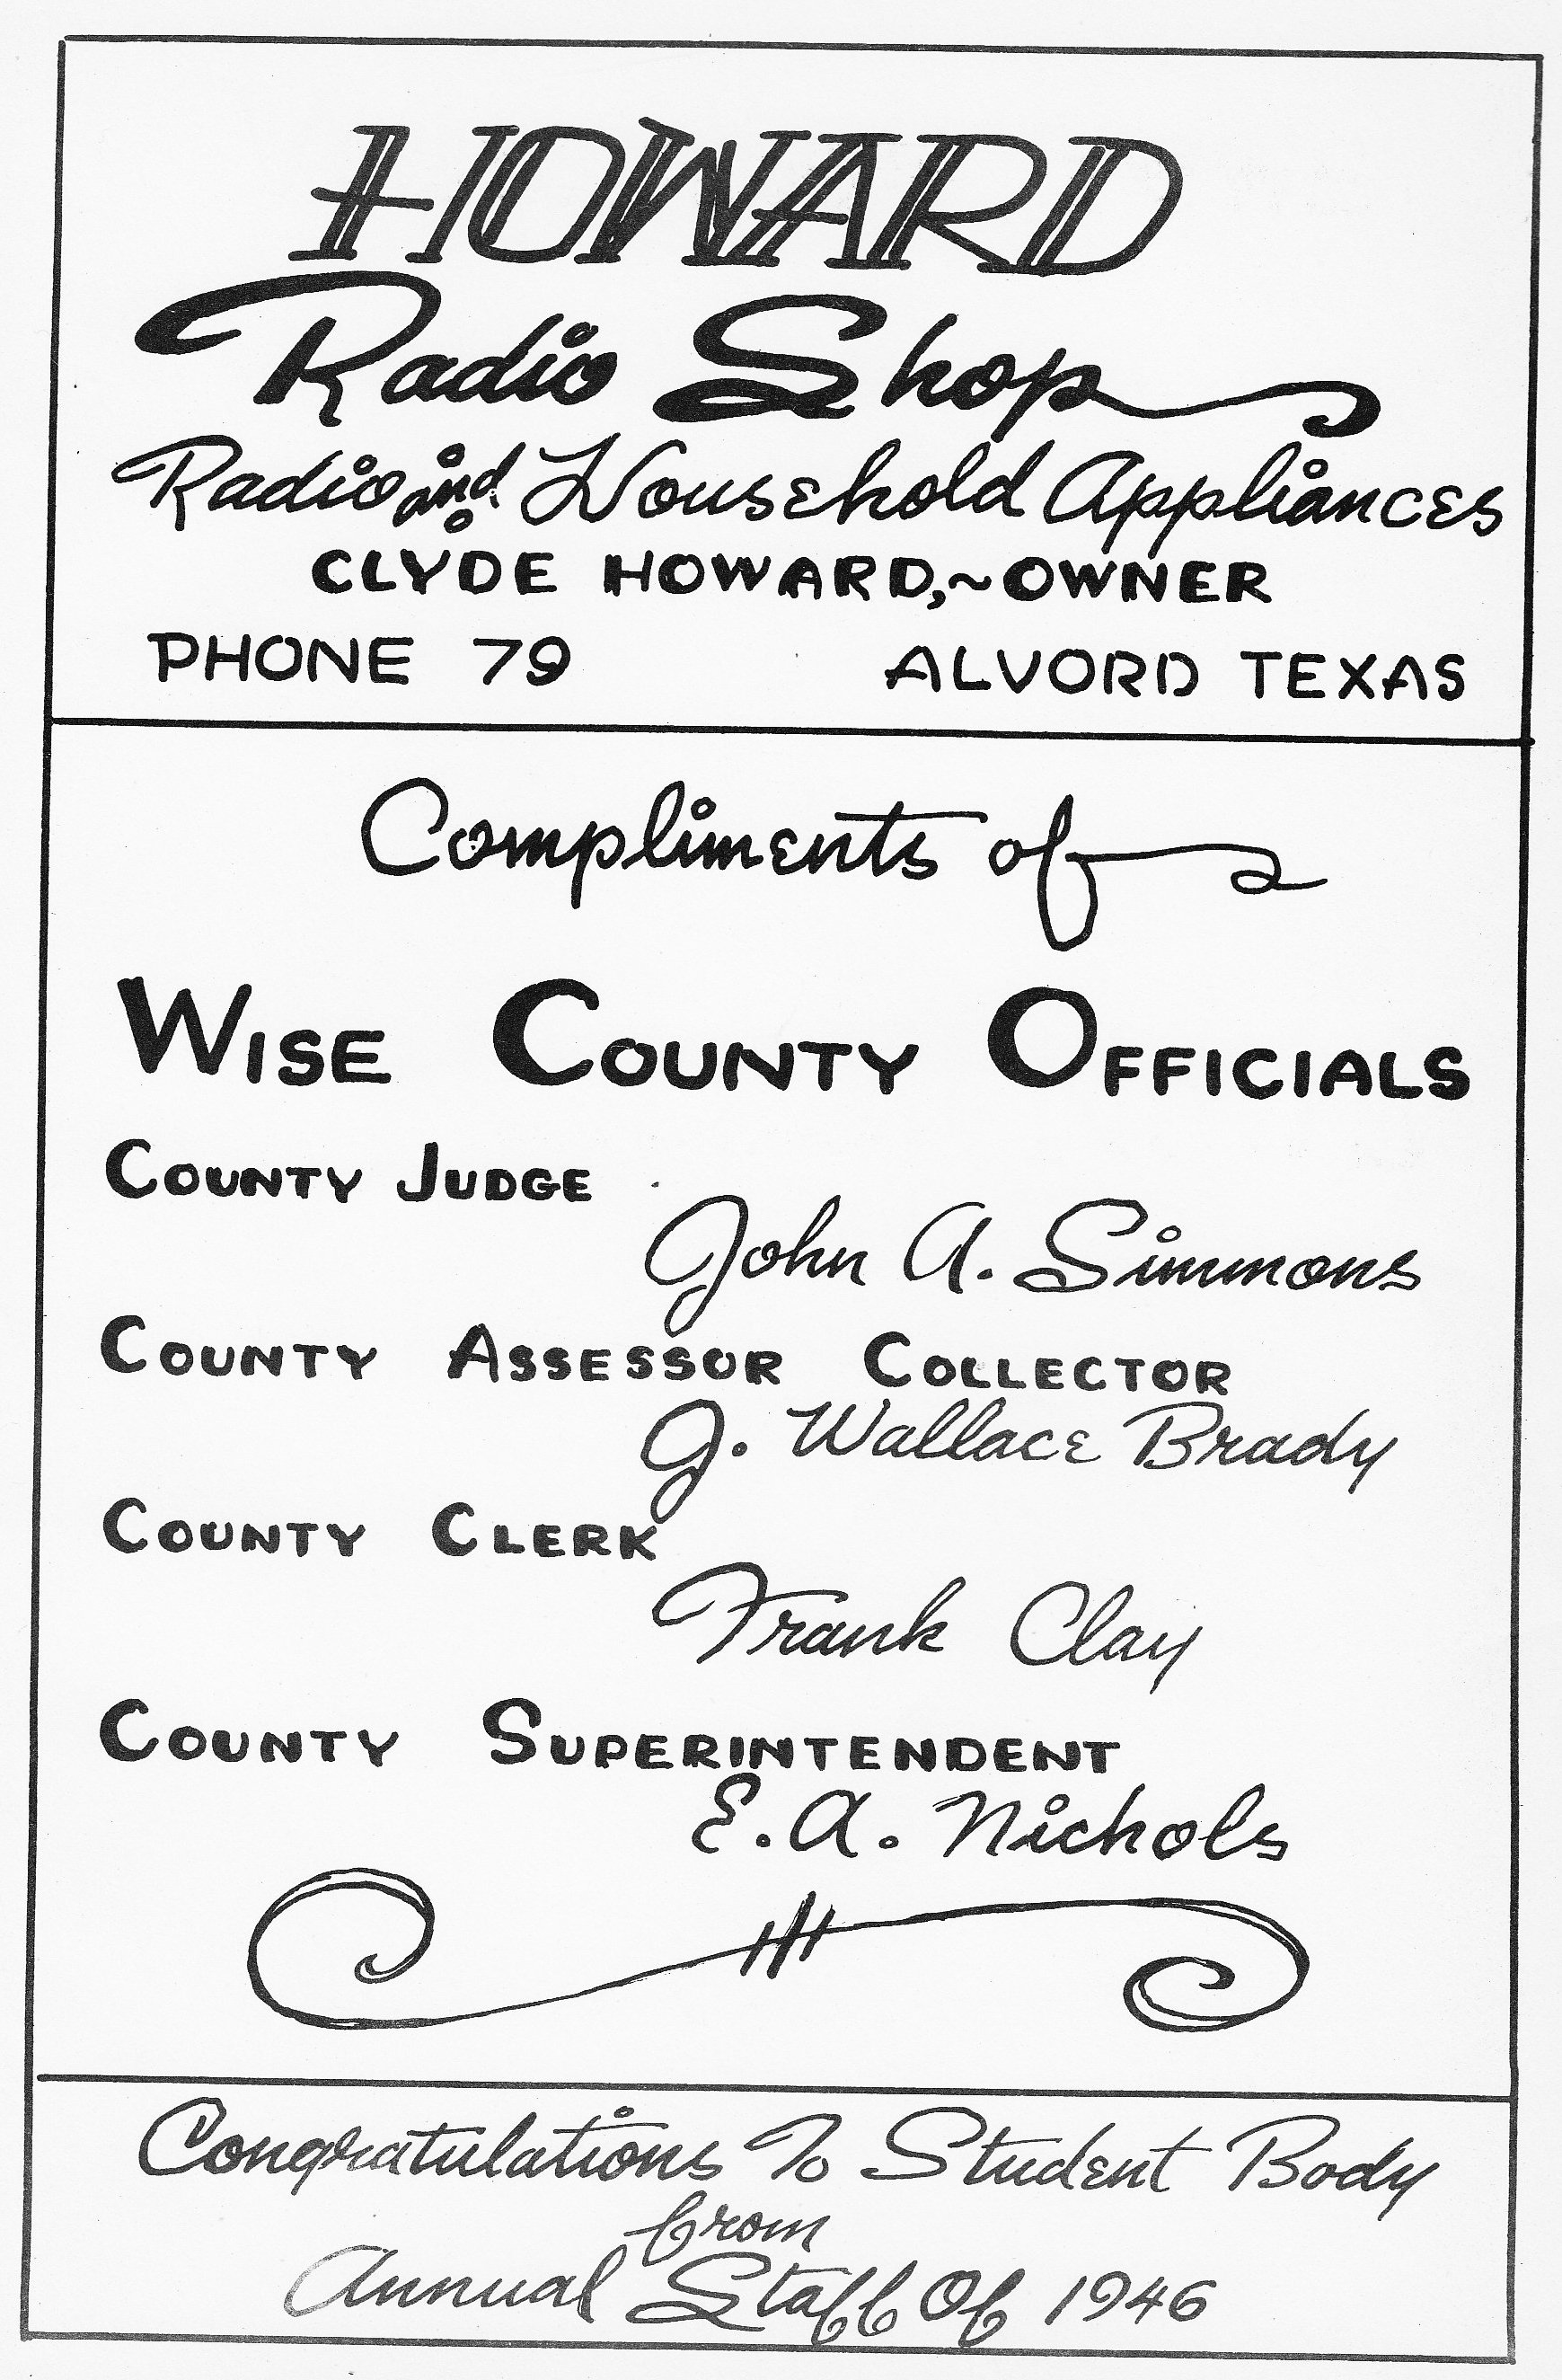 HOWARD
Radio Shop
Radio and Household Appliances
CLYDE HOWARD,~OWNER
PHONE 79 ALVORD TEXAS
Compliments of
WISE COUNTY OFFICIALS
COUNTY JUDGE
John A. Simmons
COUNTY ASSESSOR COLLECTOR
J. Wallace Brady
COUNTY CLERK
Frank Clay
COUNTY SUPERINTENDENT
E. A. Nichols
Congratulations To Student Body
from
Annual Staff Of 1946